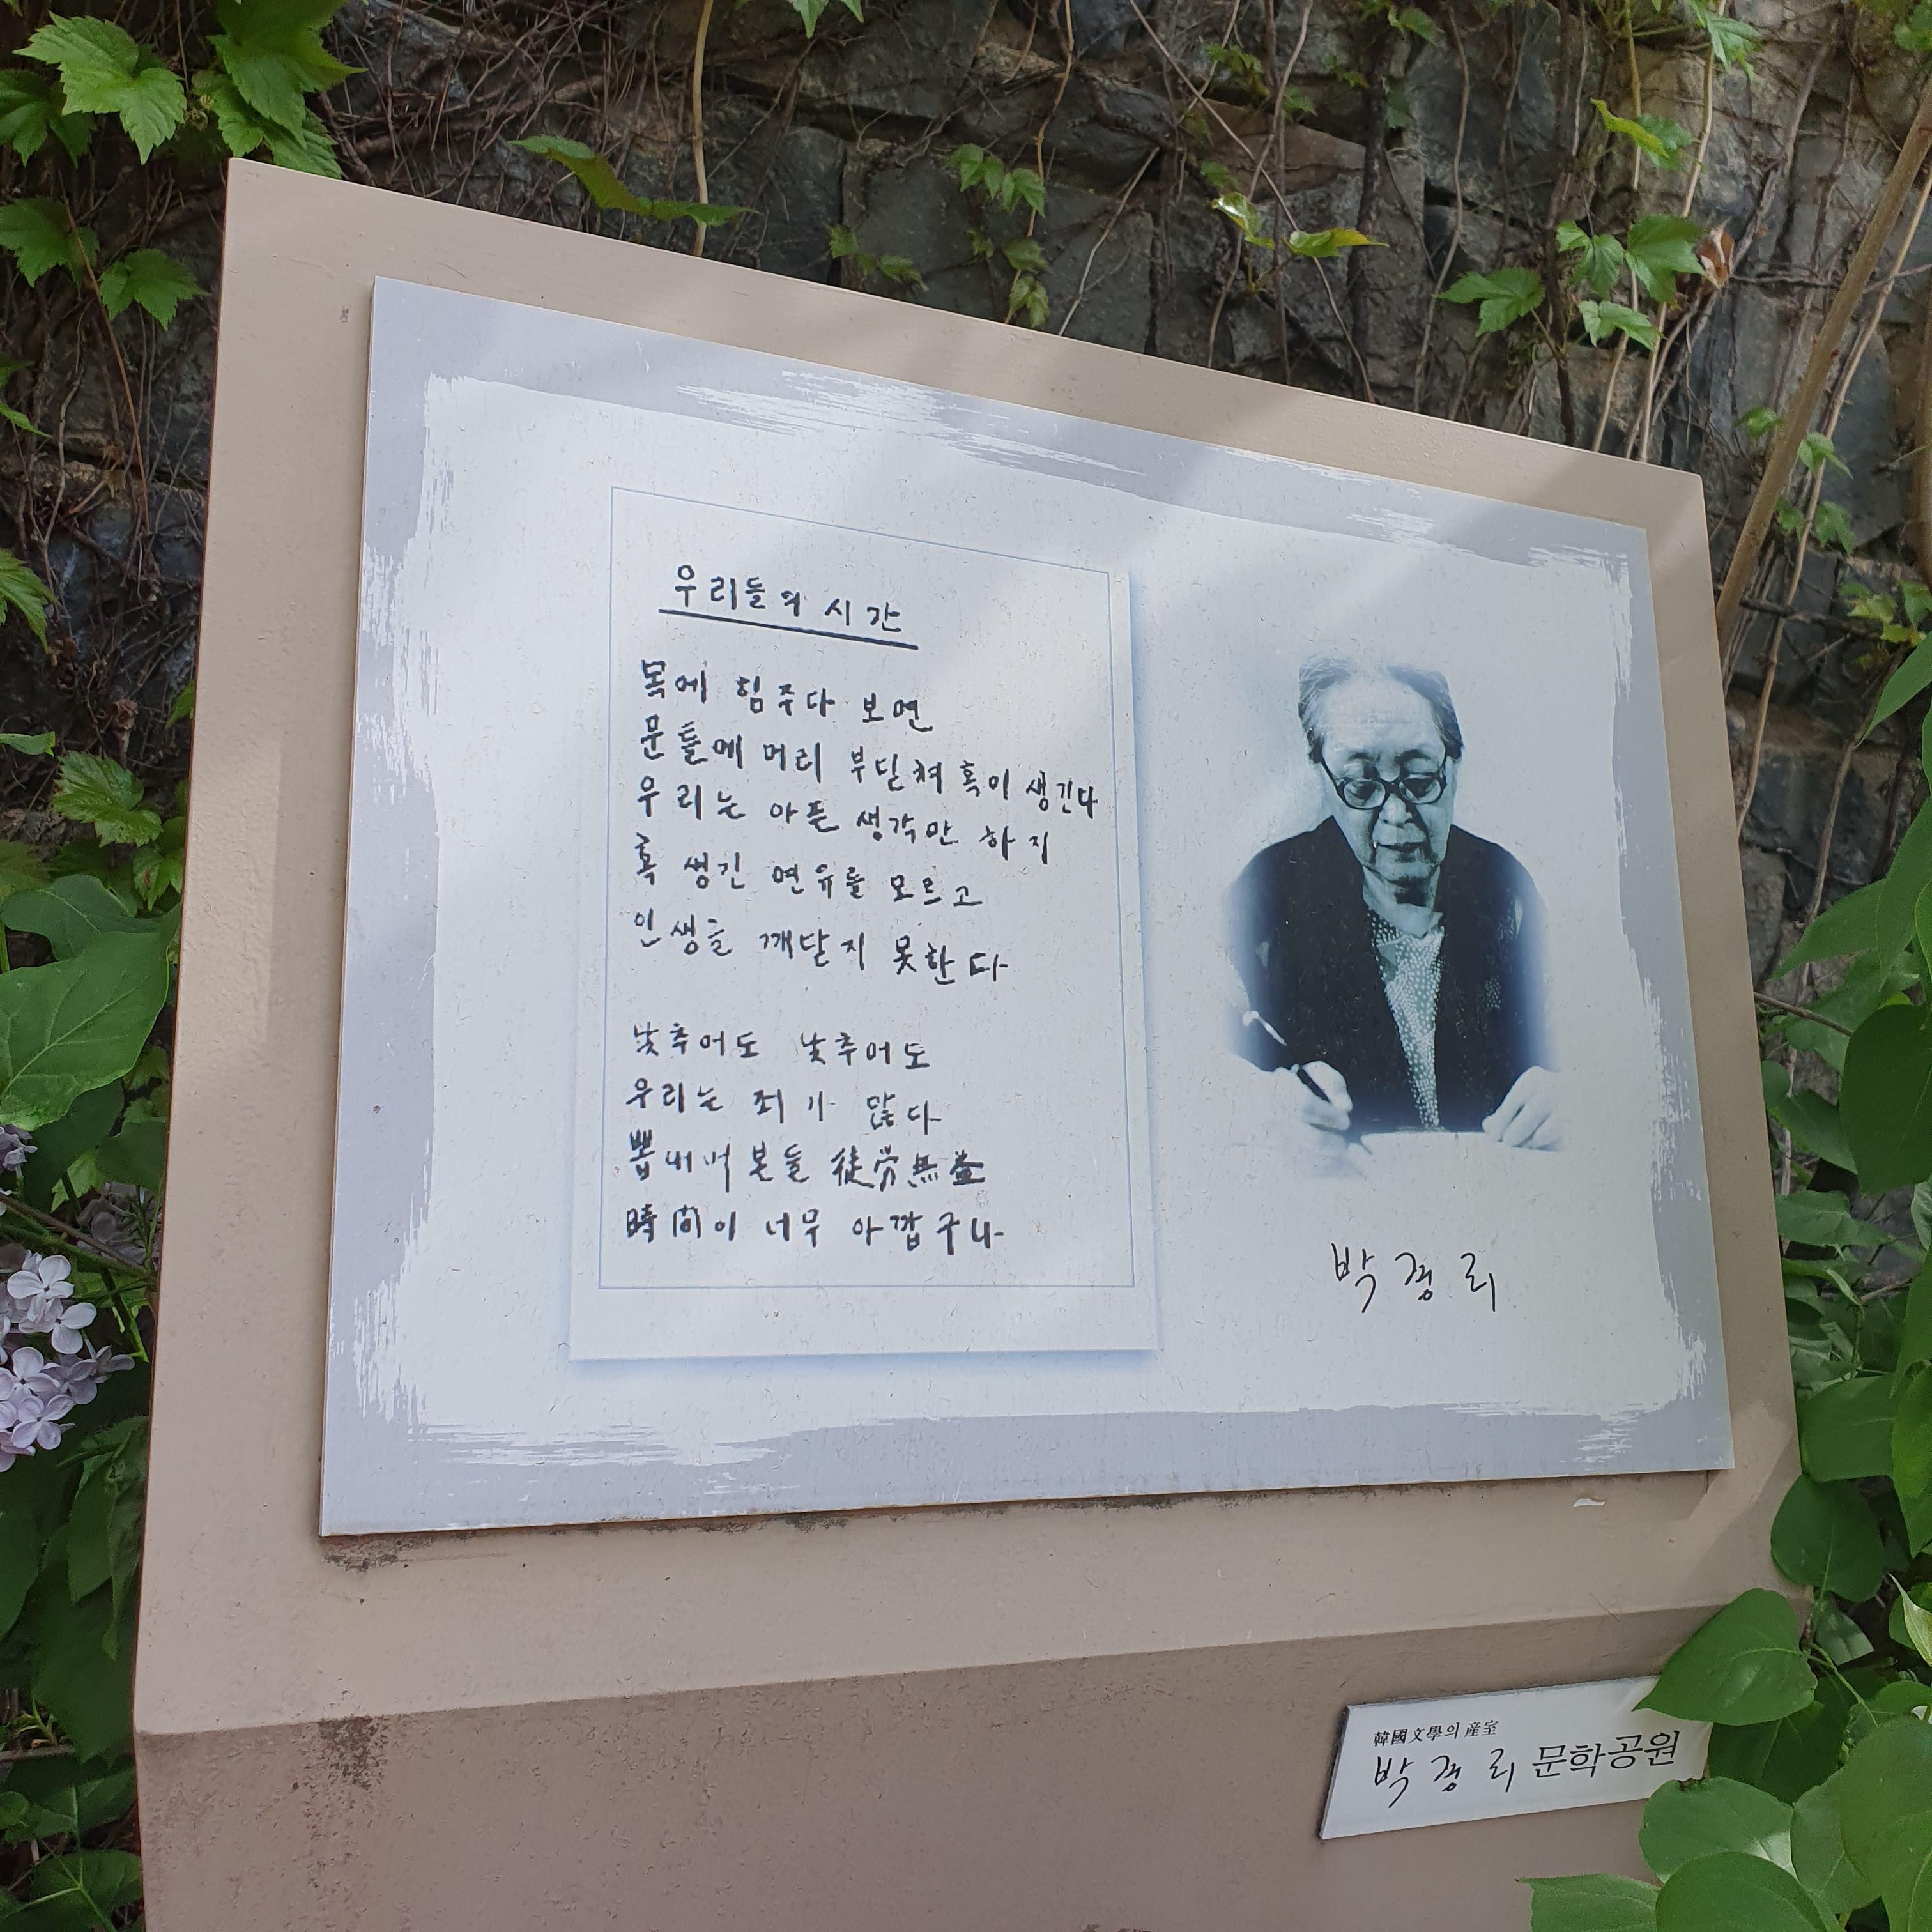 우리들의 시간
목에 힘주다 보면
문틀에 머리 부딛쳐 혹이 생긴다
우리는 아픈 생각만 하지
혹 생긴 연유를 모르고
인생을 깨닫지 못한다
낮추어도 낮추어도
우리는 죄가 많다
뽑내어 본들 徒労無益
時間이 너무 아깝구나
박경리
韓國文學의 産室
박경리 문학공원